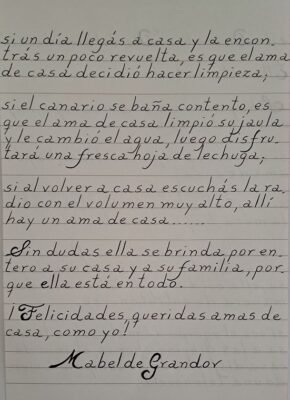 si un día llegás a casa y la encon-
trás un poco revuelta, es que el ama
de casa decidió hacer limpieza;
si el canario se baña contento, es
que el ama de casa limpió su jaula
y le cambió el agua, luego disfru-
tará una fresca hoja de lechuga;
si al volver a casa escuchás la ra-
dio con el volumen muy alto, allí
hay un ama de casa......
Sin dudas ella se brinda por en-
tero a su casa y a su familia, por-
que ella está en todo.
¡Felicidades, queridas amas de
casa, como yo!
Mabel de Grandov